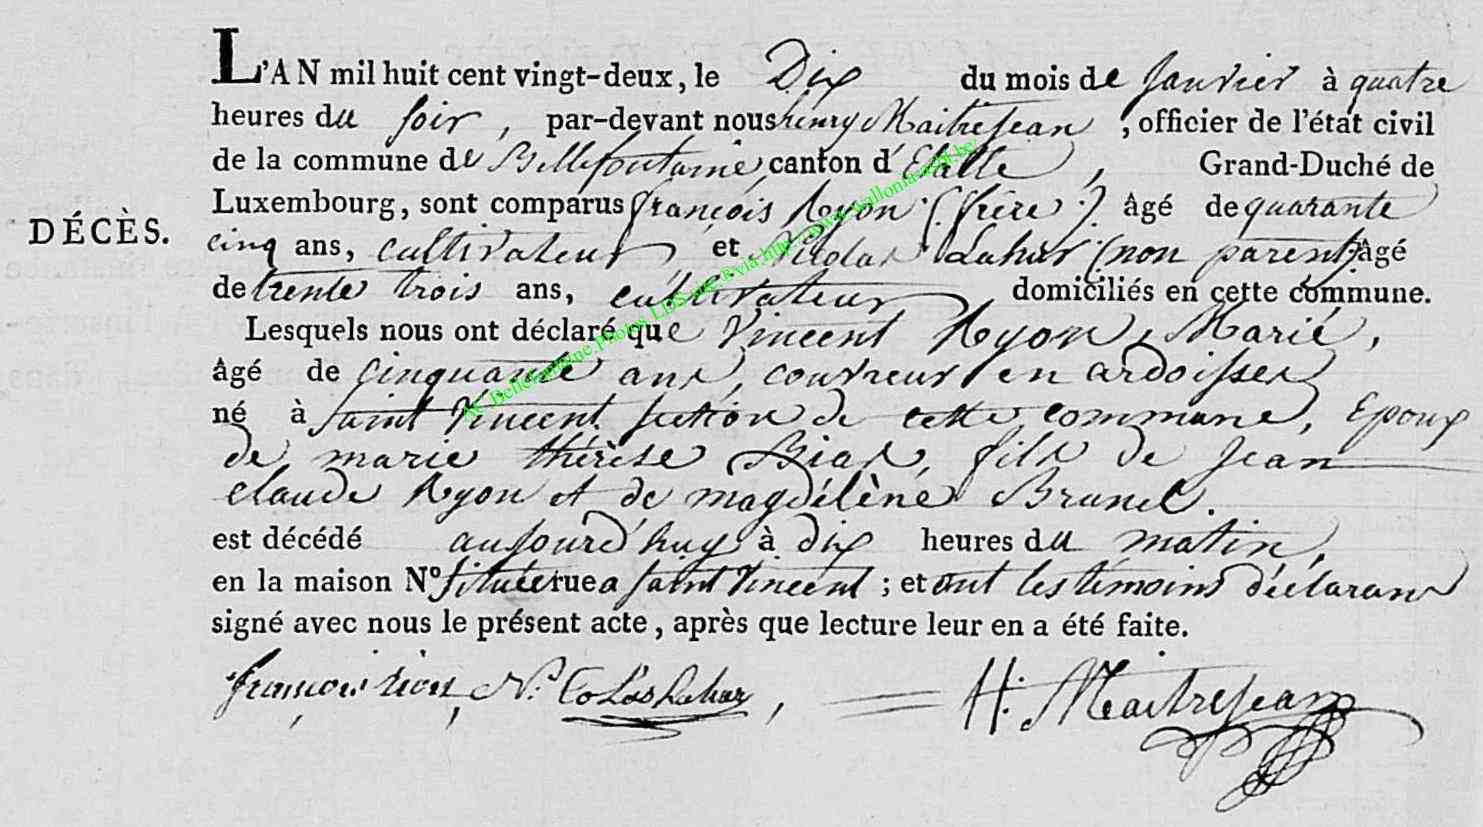 L'AN mil huit cent vingt-deux, le Dix du mois de Janvier à quatre
heures du soir, par-devant nous henry Maitrejean, officier de l'état civil
de la commune de Bellefontaine, canton d'Etalle, Grand-Duché de
Luxembourg, sont comparus françois Ryon (frère) âgé de quarante
DÉCÈS.
cinq ans, cultivateur et Nicolas Lahur (non parent) âgé
de trente trois ans, cultivateur, domiciliés en cette commune.
Lesquels nous ont déclaré que Vincent Ryon, Marié,
âgé de cinquante ans, couvreur en ardoisses
né à saint Vincent section de cette commune, Epoux
de marie thérèse Bias, fils de Jean
claude Ryon et de magdélène Brunel.
est décédé aujourd'huy à dix heures du matin,
en la maison No située rue a saint Vincent ; et ont les témoins déclarans
signé avec nous le présent acte, après que lecture leur en a été faite.
françois rion, Ni Colas Lahur, H. Maitrejean